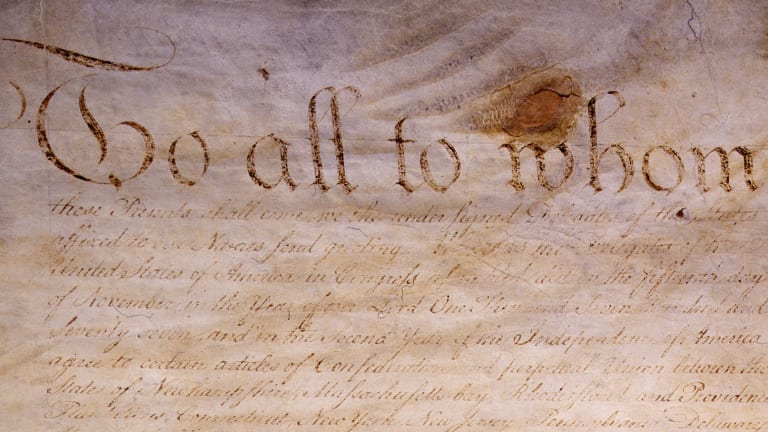 To all to whom
these Presents shall come, we the under signed Delegates of the States
affixed to our Names send greeting. Whereas the Delegates of the
United States of America in Congress assembled did on the fifteenth day
of November in the Year of our Lord One Thousand Seven Hundred and
Seventy seven, and in the Second Year of the Independence of America
agree to certain articles of Confederation and perpetual Union between the
States of Newhampshire, Massachusetts bay, Rhodeisland and Providence
Connecticut, New York, New Jersey, Pennsylvania, Delaware,